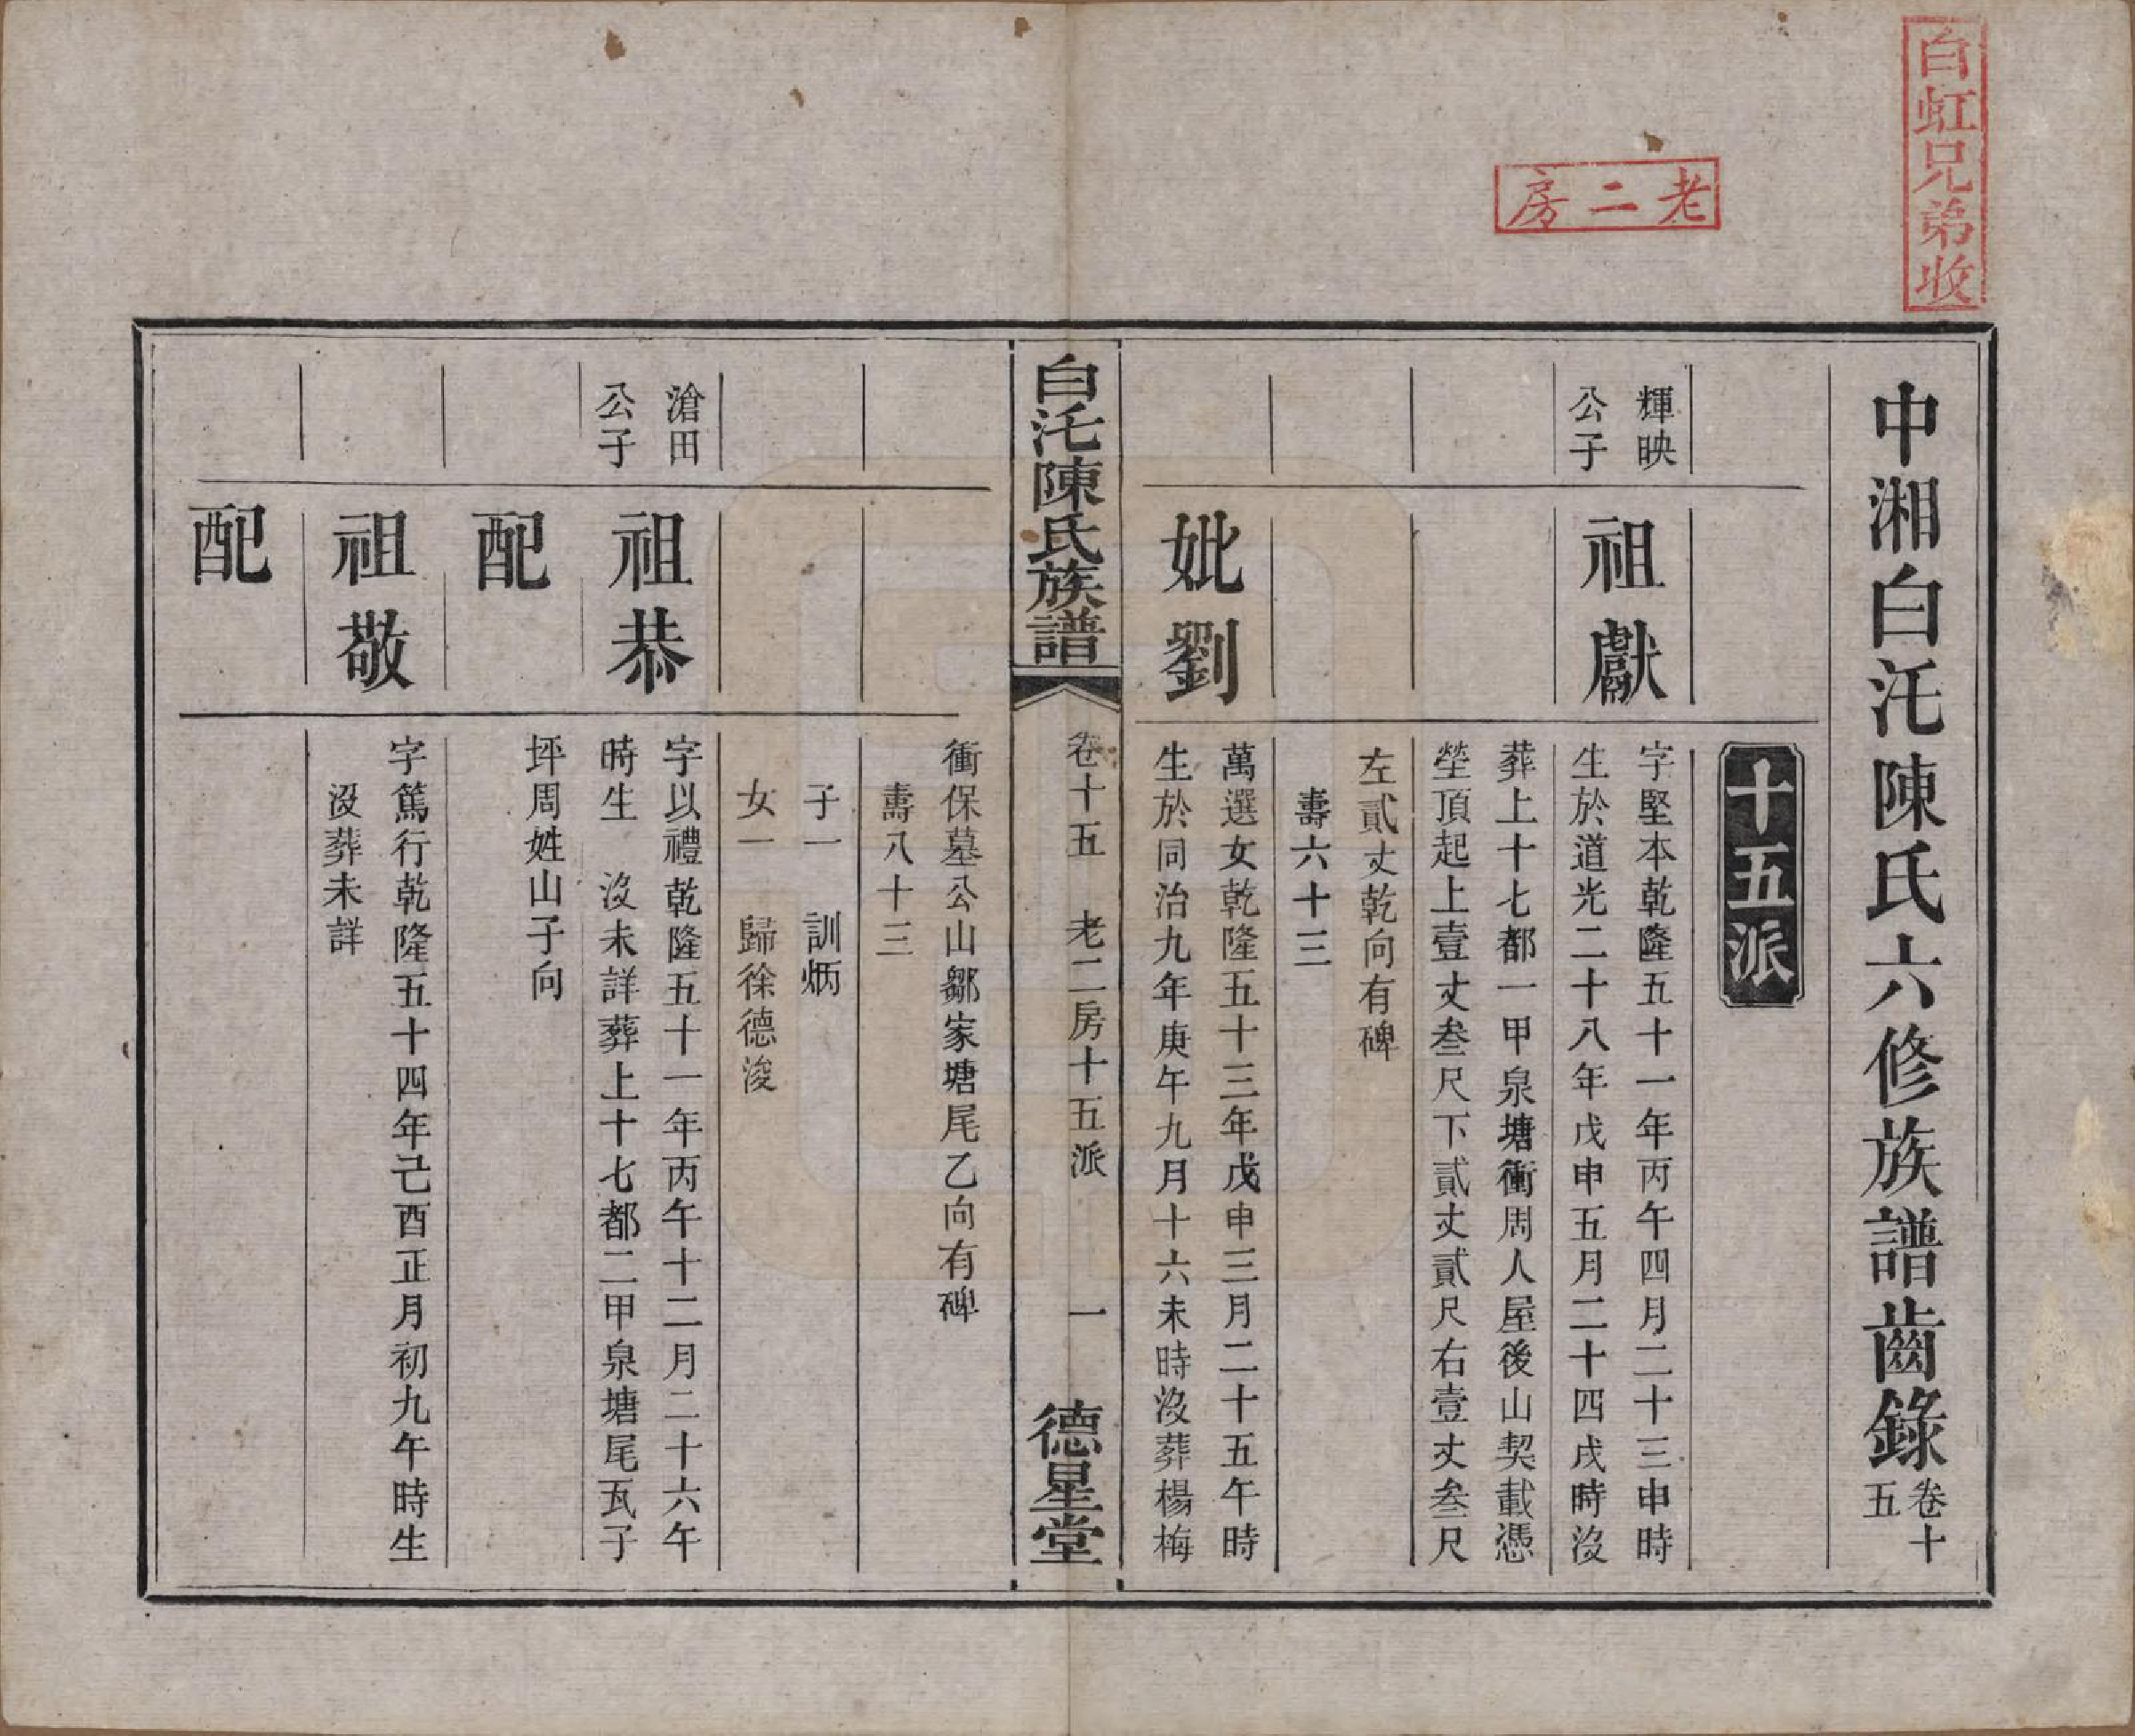 白虹兄弟收
老二房
中湘白汑陳氏六修族譜齒錄卷十五
十五派
輝映公子
祖獻
字堅本乾隆五十一年丙午四月二十三申時
生於道光二十八年戊申五月二十四戌時沒
葬上十七都一甲泉塘衝周人屋後山契載憑
塋頂起上壹丈叁尺下貳丈貳尺右壹丈叁尺
左貳丈乾向有碑
壽六十三
妣劉
萬選女乾隆五十三年戊申三月二十五午時
生於同治九年庚午九月十六未時沒葬楊梅
白汑陳氏族譜
卷十五 老二房十五派 一
德星堂
衝保墓公山鄒家塘尾乙向有碑
壽八十三
子一 訓炳
女一 歸徐德浚
滄田公子
祖恭
字以禮乾隆五十一年丙午十二月二十六午
時生 沒未詳葬上十七都二甲泉塘尾瓦子
坪周姓山子向
配
祖敬
字篤行乾隆五十四年己酉正月初九午時生
沒葬未詳
配